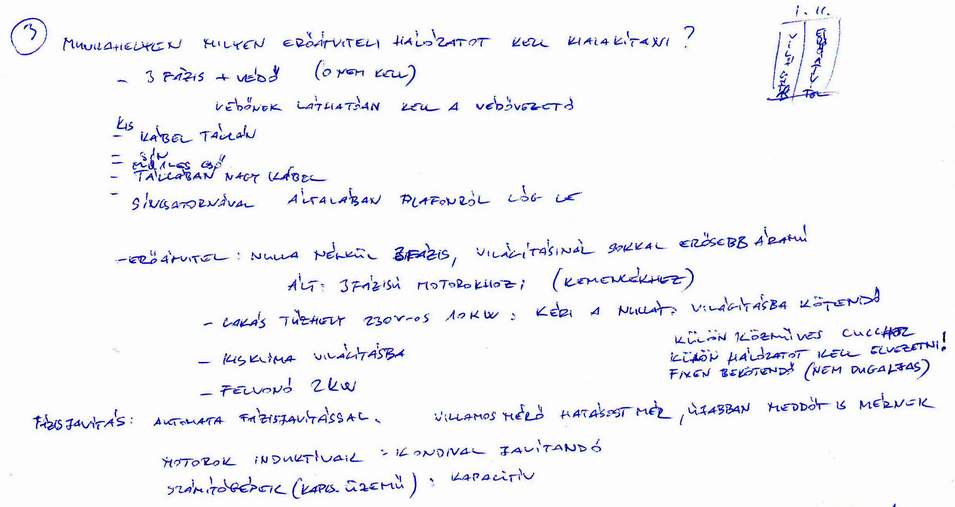 I. II.
VILÁGÍTÁS
ERŐÁTVITEL
3 MUNKAHELYEN MILYEN ERŐÁTVITELI HÁLÓZATOT KELL KIALAKÍTANI?
- 3 FÁZIS + VÉDŐ (0 NEM KELL)
VÉDŐNEK LÁTHATÓAN KELL A VÉDŐVEZETŐ
- KIS KÁBEL TÁLCÁN
- SÍN
- CSŐ
- TÁLCÁBAN NAGY KÁBEL
- SÍNCSATORNÁVAL ÁLTALÁBAN PLAFONRÓL LÓG LE
- ERŐÁTVITEL: NULLA NÉLKÜL 3FÁZIS, VILÁGÍTÁSINÁL SOKKAL ERŐSEBB ÁRAMÚ
ÁLT: 3FÁZISÚ MOTOROKHOZ; (KEMENCÉKHEZ)
- LAKÁS TŰZHELY 230V-OS 10KW: KÉRI A NULLÁT: VILÁGÍTÁSBA KÖTENDŐ
- KISKLÍMA VILÁGÍTÁSBA
- FELVONÓ 2KW
KÜLÖN KÖZMŰVES CUCCHOZ
KÜLÖN HÁLÓZATOT KELL ELVEZETNI!
FIXEN BEKÖTENDŐ (NEM DUGALJAS)
FÁZISJAVÍTÁS: AUTOMATA FÁZISJAVÍTÁSSAL. VILLAMOS MÉRŐ HATÁSOST MÉR, ÚJABBAN MEDDŐT IS MÉRNEK
MOTOROK INDUKTÍVAK = KONDIVAL JAVÍTANDÓ
SZÁMÍTÓGÉPEK (KAPCS. ÜZEMŰ): KAPACITÍV